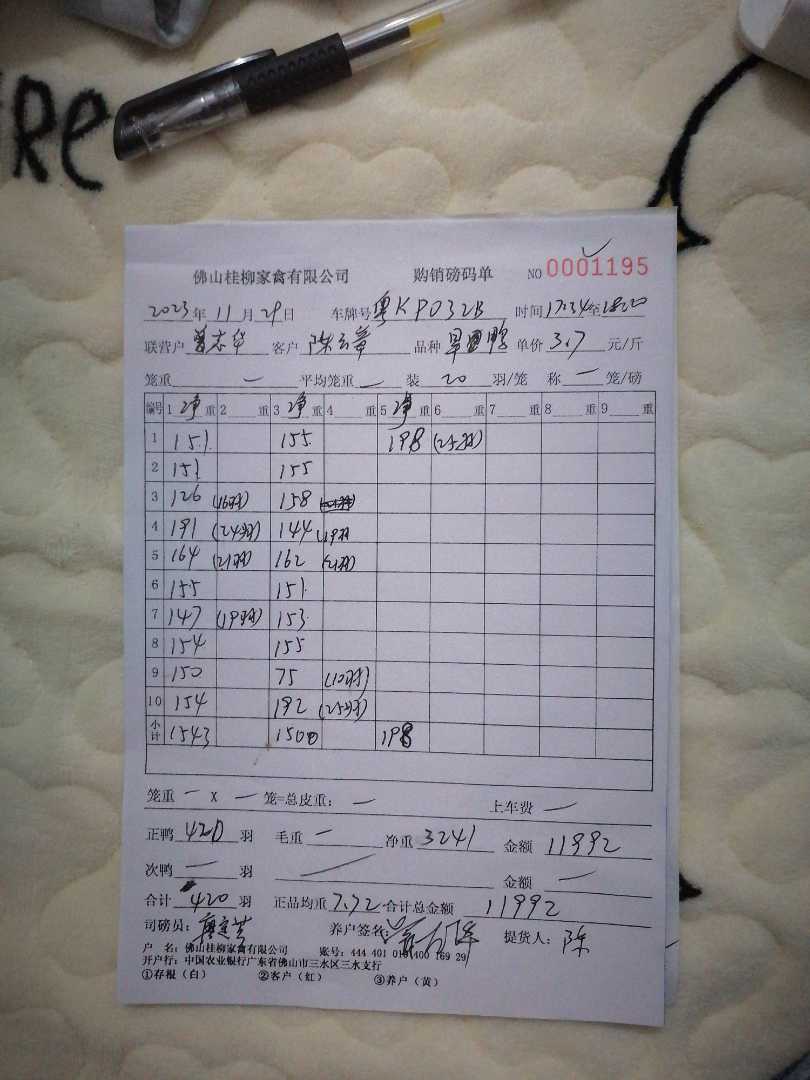 RE
佛山桂柳家禽有限公司 购销磅码单 NO 0001195
2023年 11月 29日 车牌号 粤KP032B 时间 17:34至18:20
联营户 客户 陈 品种 鸭 单价 3.7 元/斤
笼重 — 平均笼重 — 装 20 羽/笼 称 — 笼/磅
编号 1 净 重 2 重 3 净 重 4 重 5 净 重 6 重 7 重 8 重 9 重
1 151 155 198 (25羽)
2 151 155
3 126 (16羽) 158
4 191 (24羽) 144 (19羽
5 164 (21羽) 162 (21羽)
6 155 151
7 147 (19羽) 153
8 154 155
9 150 75 (10羽)
10 154 192 (25羽)
小计 1543 1500 198
笼重 — X — 笼=总皮重: — 上车费 —
正鸭 420 羽 毛重 — 净重 3241 金额 11992
次鸭 — 羽 金额 —
合计 420 羽 正品均重 7.72 合计总金额 11992
司磅员: 养户签名: 提货人: 陈
户 名: 佛山桂柳家禽有限公司 账号: 444 401 010 400 169 29
开户行: 中国农业银行广东省佛山市三水区三水支行
①存根(白) ②客户(红) ③养户(黄)